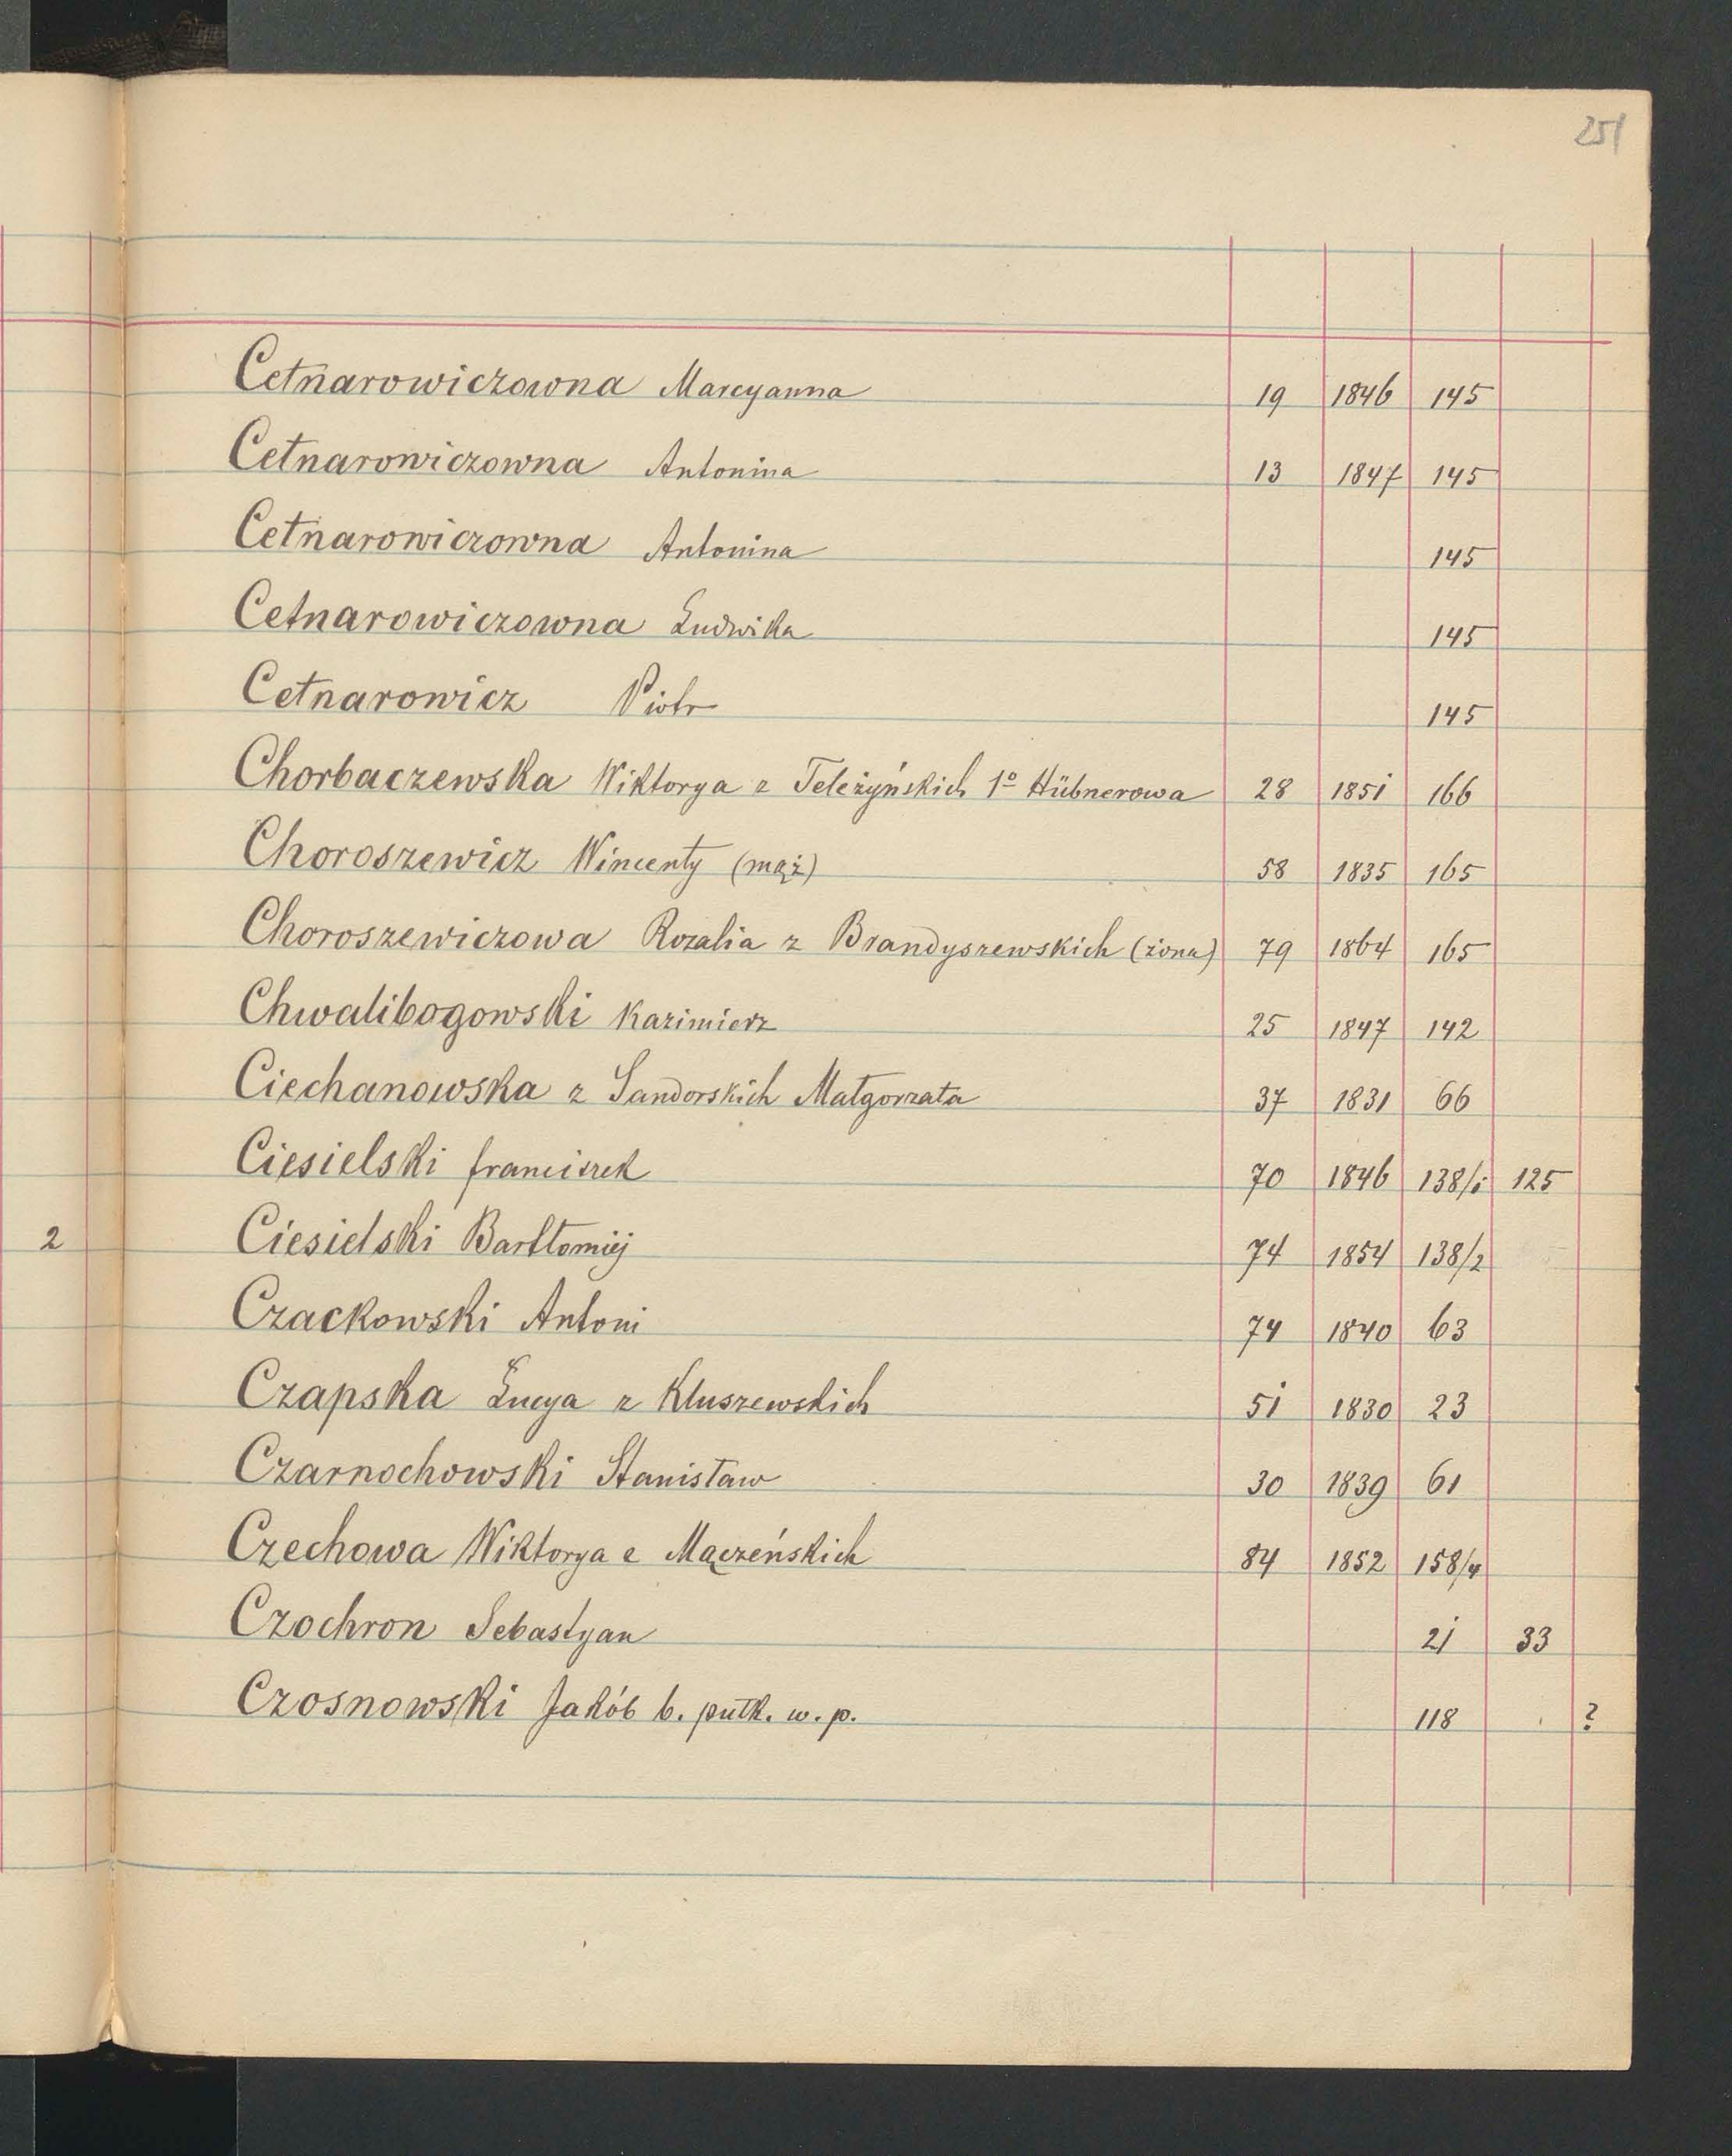 251
Cetnarowiczowna Marcyanna 19 1846 145
Cetnarowiczowna Antonina 13 1847 145
Cetnarowiczowna Antonina 145
Cetnarowiczowna Ludwika 145
Cetnarowicz Piotr 145
Chorbaczewska Wiktorya z Teleżyńskich 1º Hübnerowa 28 1851 166
Choroszewicz Wincenty (mąż) 58 1835 165
Choroszewiczowa Rozalia z Brandyszewskich (żona) 79 1864 165
Chwalibogowski Kazimierz 25 1847 142
Ciechanowska z Sandorskich Małgorzata 37 1831 66
Ciesielski franciszek 70 1846 138/1 125
2 Ciesielski Bartłomiej 74 1854 138/2
Czackowski Antoni 74 1840 63
Czapska Łucya z Kluszewskich 51 1830 23
Czarnochowski Stanisław 30 1839 61
Czechowa Wiktorya z Mączeńskich 84 1852 158/4
Czochron Sebastyan 21 33
Czosnowski Jakób b. pułk. w. p. 118 ?